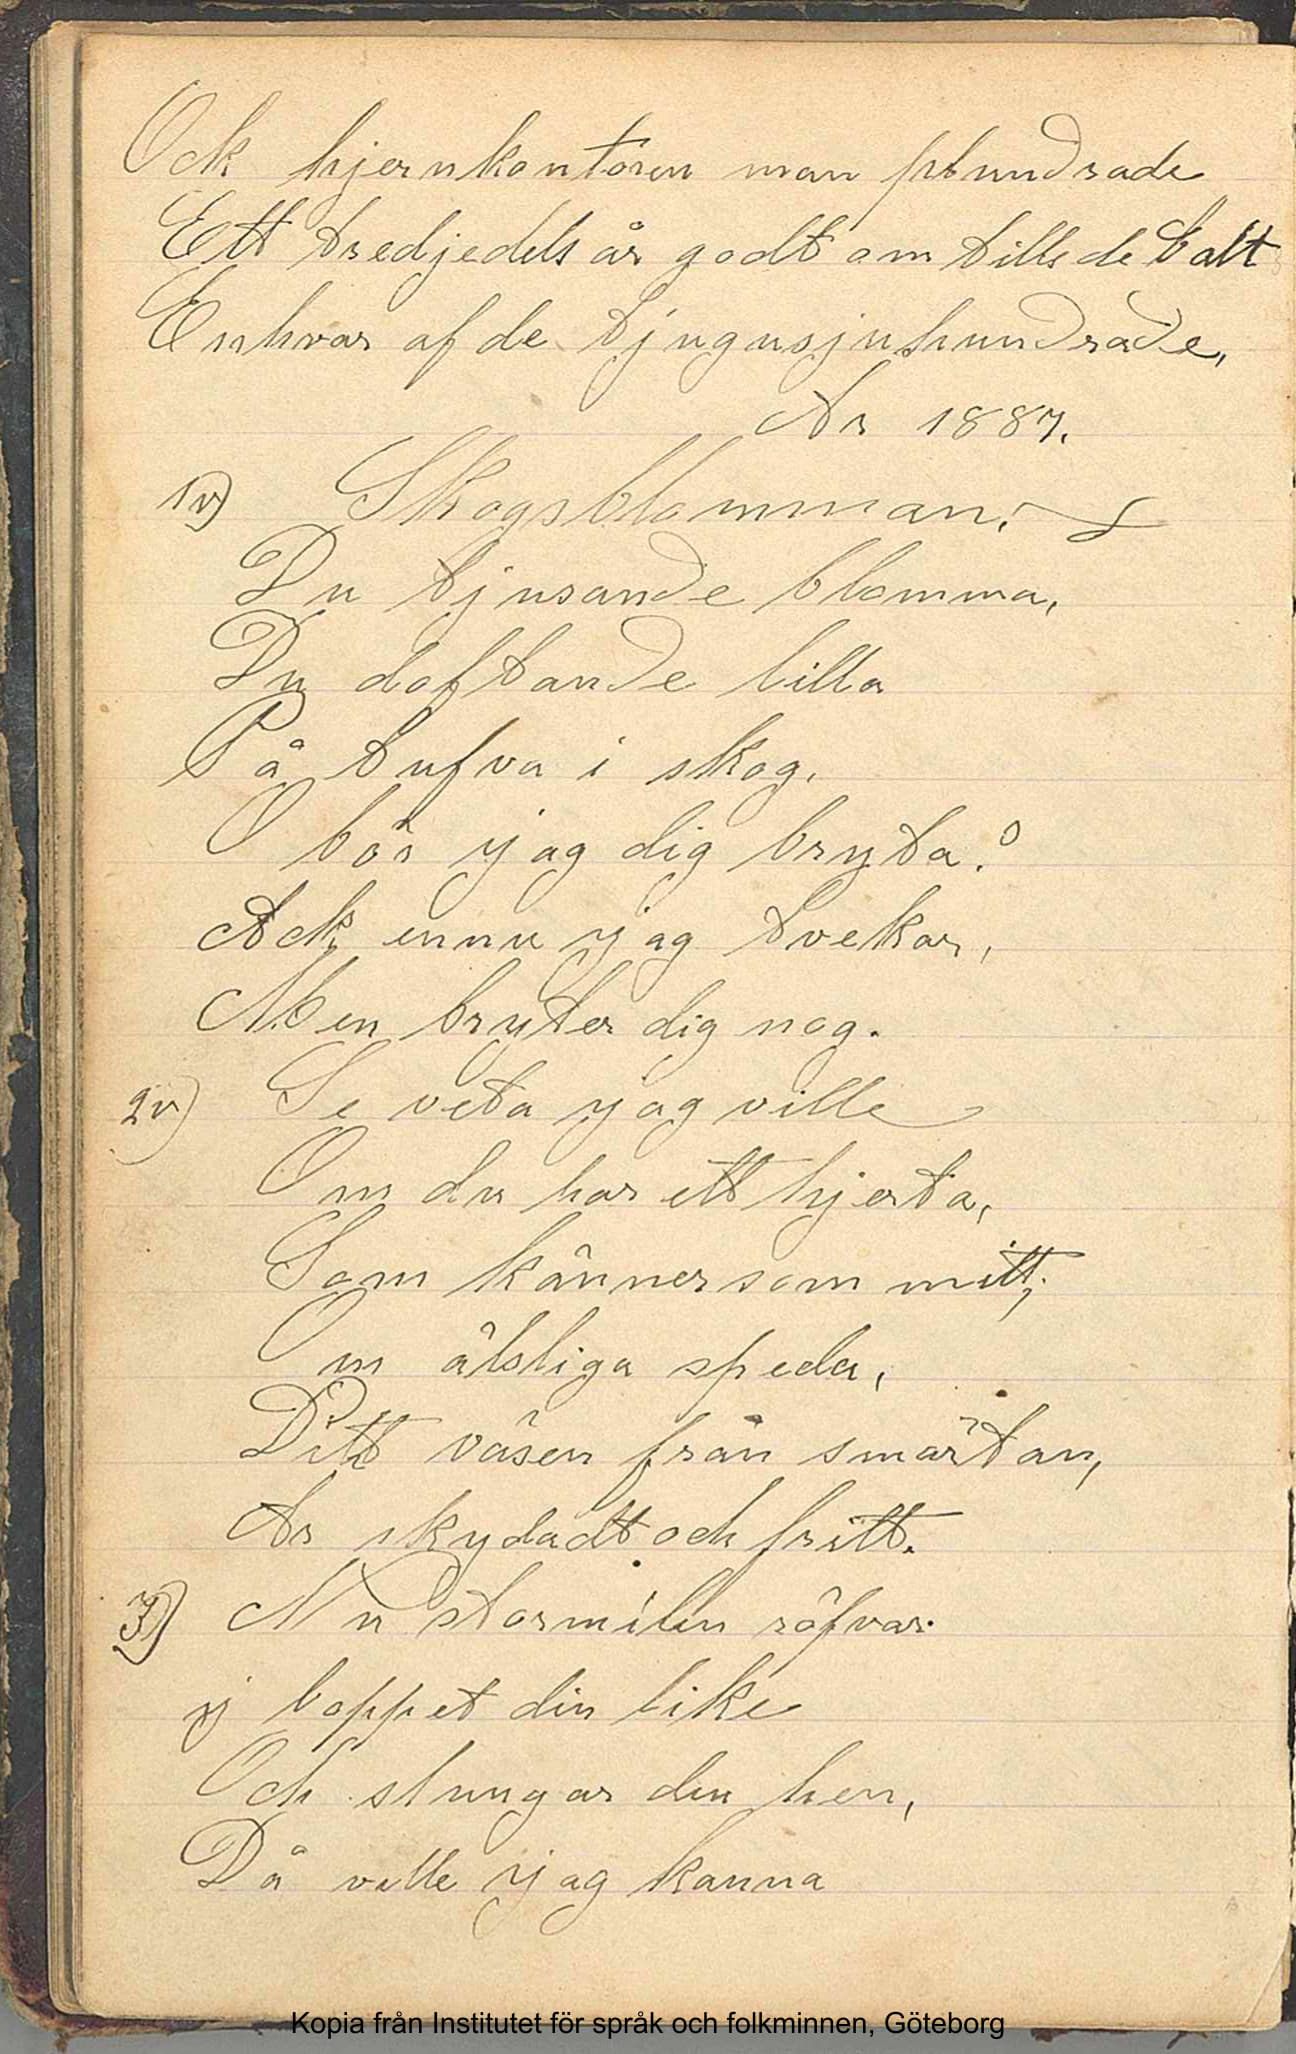 Ock hjernkontoren man plundrade
Ett tredjedels år godt om tills de balt
Enhvar af de tjugusjuhundrade,
År 1887.
1v) Skogsblomman.
Du tjusande blomma,
Du doftande lilla
På tufva i skog.
O bör jag dig bryta?
Ack ennu jag tvekar,
Men bryter dig nog.
2v) Se veta jag ville
Om du har ett hjerta,
Som känner som mitt,
Om älsliga speda,
Ditt väsen från smärtan,
Är skydadt och fritt.
3) Nu stormilen röfvar
j loppet din like
Och slungar den hen,
Då ville jag kanna
Kopia från Institutet för språk och folkminnen, Göteborg